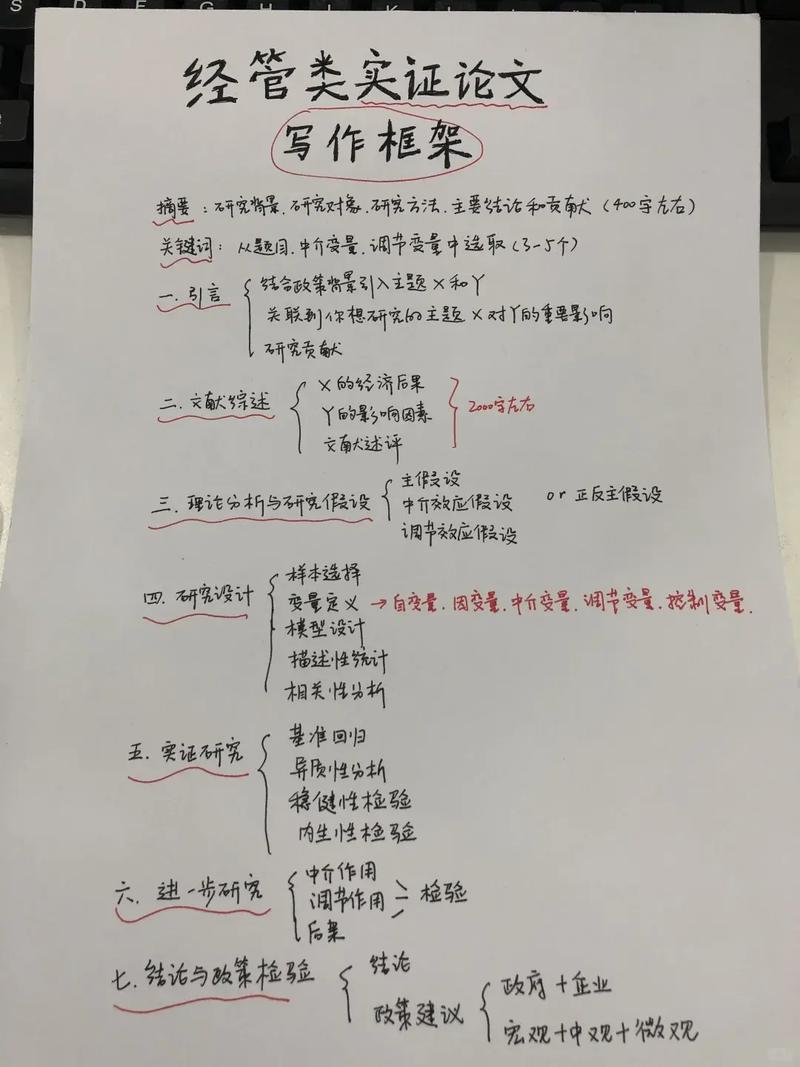 经管类实证论文
写作框架
摘要：研究背景、研究对象、研究方法、主要结论和贡献（400字左右）
关键词：从题目、中介变量、调节变量中选取（3-5个）
一、引言
结合政策背景引入主题X和Y
关联到你想研究的主题X对Y的重要影响
研究贡献
二、文献综述
X的经济后果
Y的影响因素
文献述评
2000字左右
三、理论分析与研究假设
主假设
中介效应假设
调节效应假设
or 正反主假设
四、研究设计
样本选择
变量定义 → 自变量、因变量、中介变量、调节变量、控制变量、
模型设计
描述性统计
相关性分析
五、实证研究
基准回归
异质性分析
稳健性检验
内生性检验
六、进一步研究
中介作用
调节作用
后果
检验
七、结论与政策检验
结论
政策建议
政府+企业
宏观+中观+微观